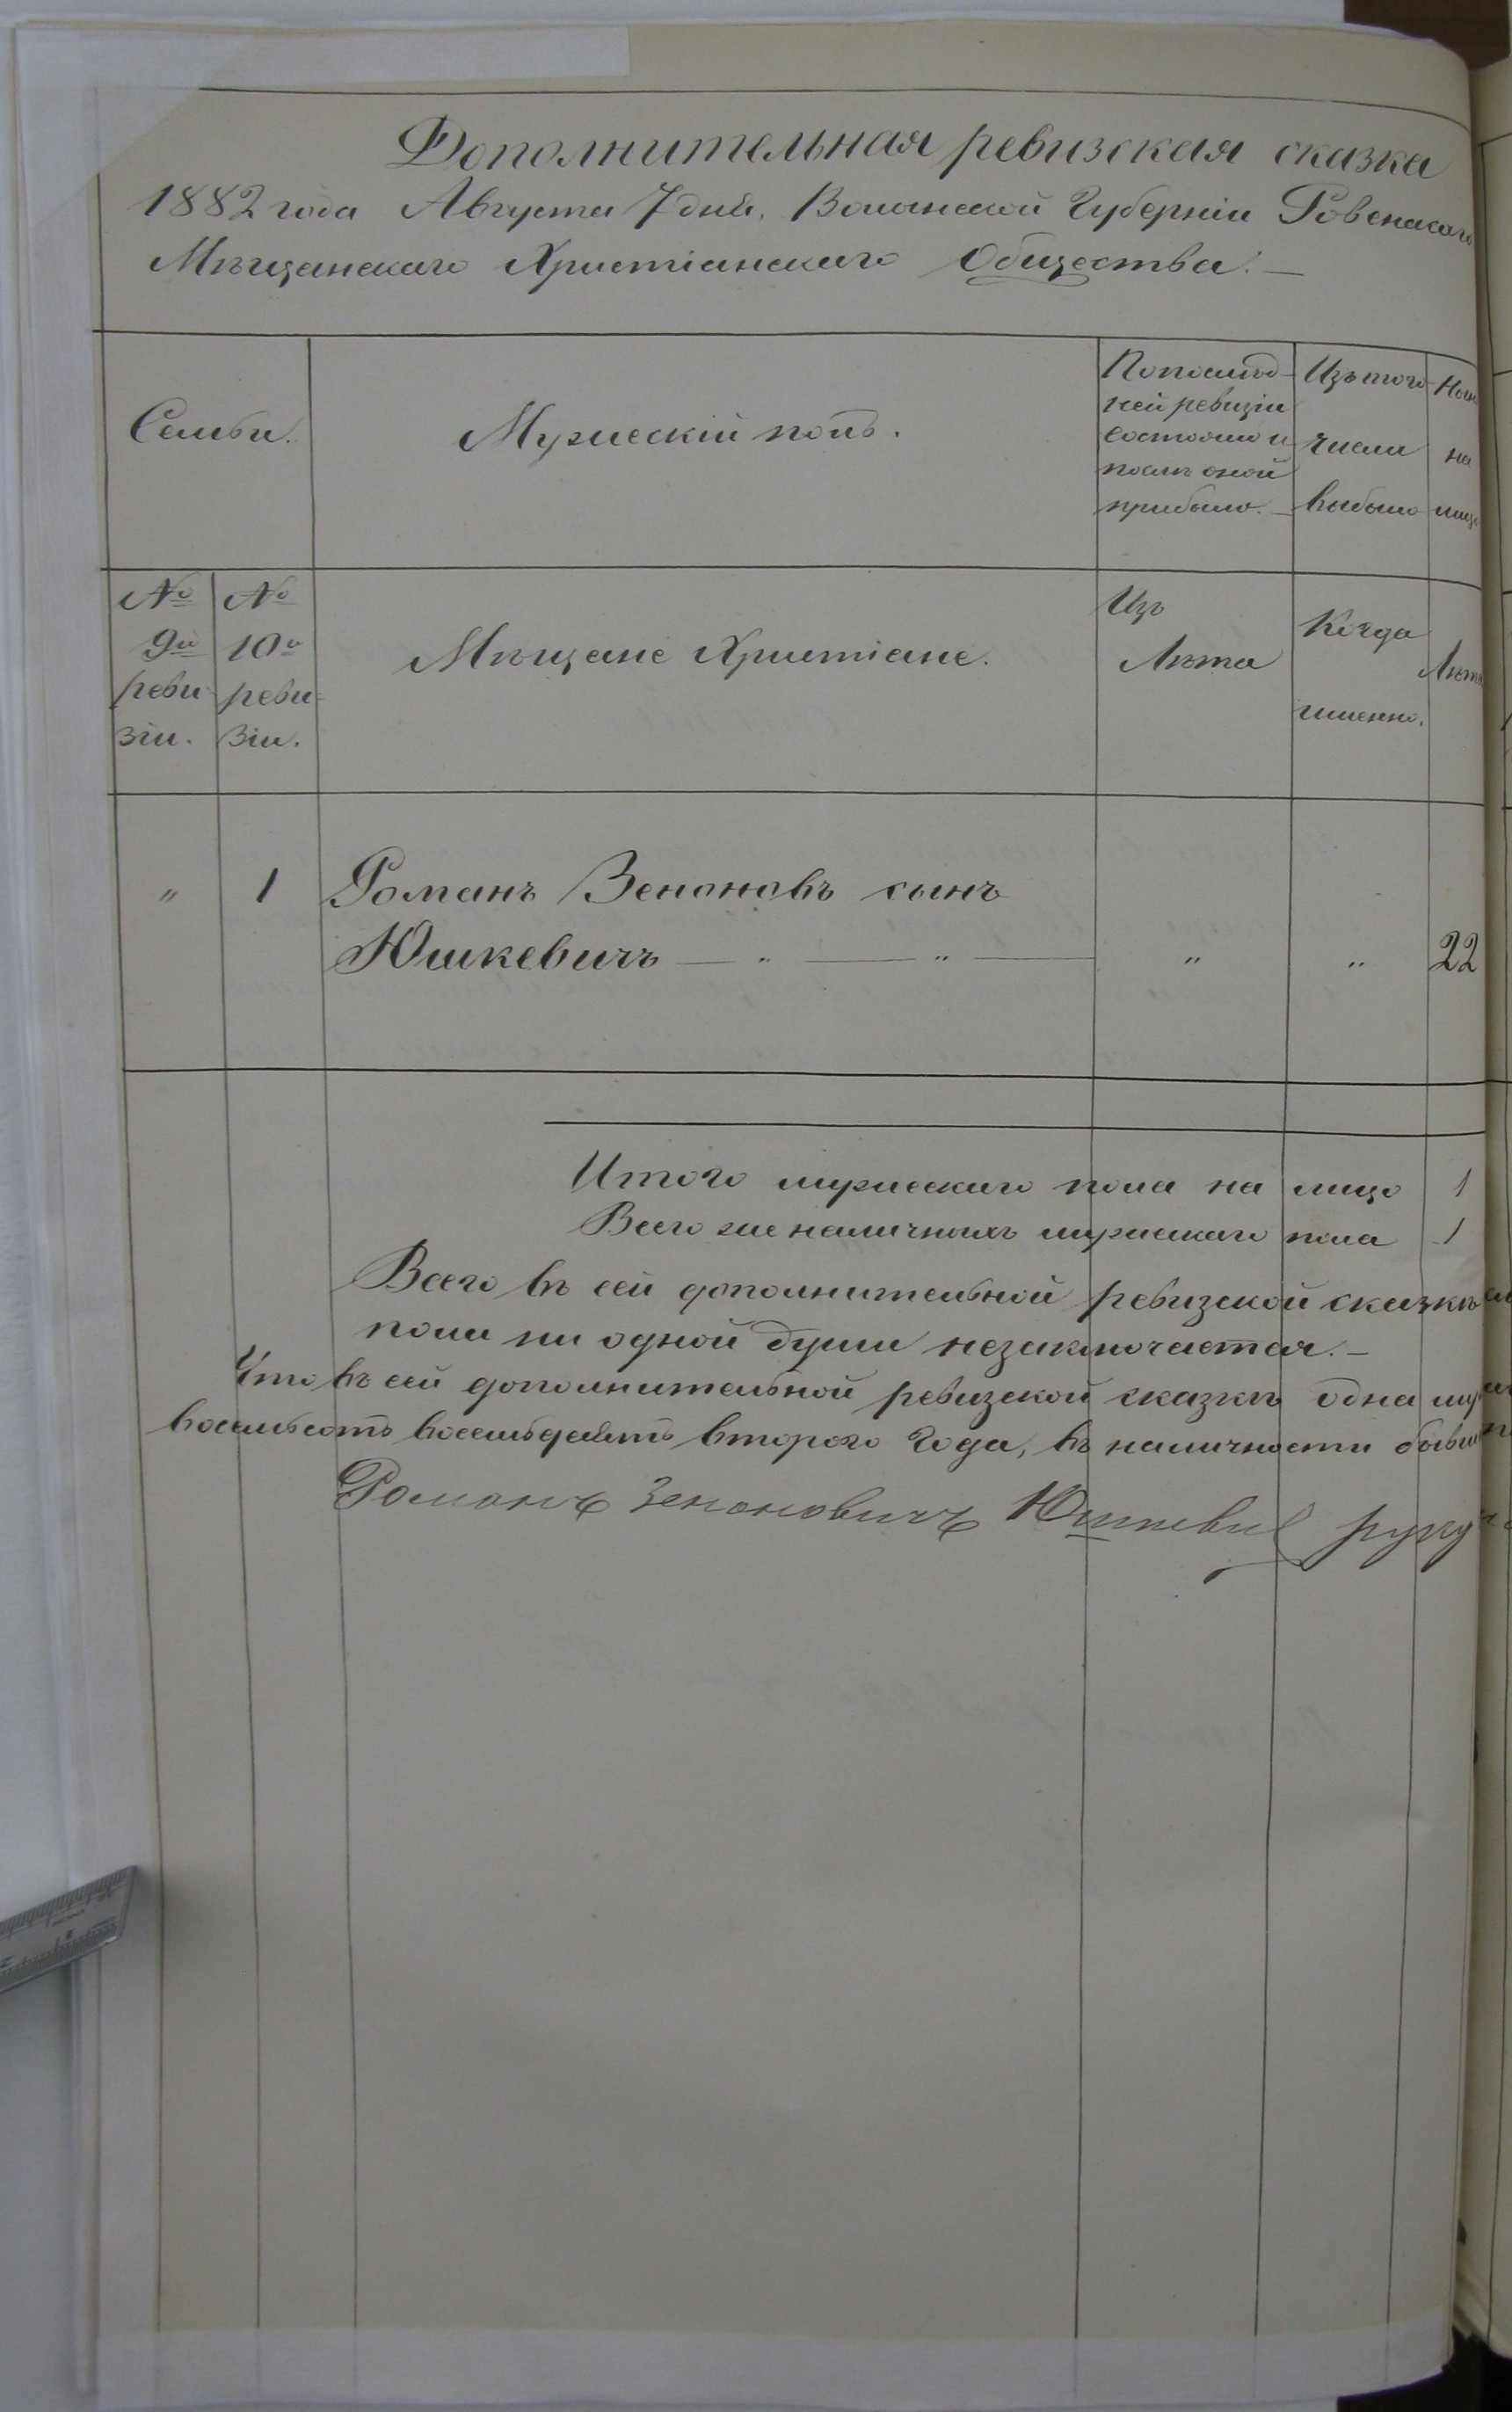 Дополнительная ревизская сказка
1882 года Августа 7 дня. Волынской Губерніи Ровенскаго
Мѣщанскаго Христіанскаго Общества. —
Семьи.
Мужескій полъ.
По послѣд-
ней ревизіи
состояло и
послѣ оной
прибыло. —
Изъ того
числа
выбыло
Нын
на
лицо
№ 9й реви-
зіи.
№ 10й реви-
зіи.
Мѣщане Христіане.
Изъ
Лѣта
Когда
именно.
Лѣта
„ 1 Романъ Зеноновъ сынъ
Юшкевичъ — „ — „ — „ „ 22
Итого мужескаго пола на лицо 1
Всего же наличныхъ мужескаго пола 1
Всего въ сей дополнительной ревизской сказкѣ
пола ни одной души незаключается. —
Что въ сей дополнительной ревизской сказкѣ одна му
восемьсотъ восемьдесятъ втораго года, въ наличности бывш
Романъ Зеноновичъ Юшкевич руку